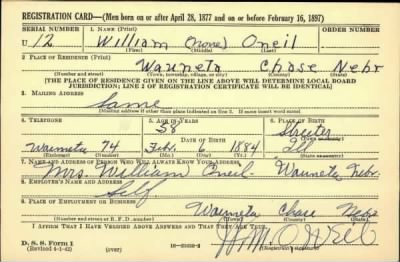 REGISTRATION CARD—(Men born on or after April 28, 1877 and on or before February 16, 1897)
SERIAL NUMBER 1. NAME (Print) ORDER NUMBER
U 12 William (none) Oneil
(First) (Middle) (Last)
2. PLACE OF RESIDENCE (Print)
Wauneta Chase Nebr
(Number and street) (Town, township, village, or city) (County) (State)
[THE PLACE OF RESIDENCE GIVEN ON THE LINE ABOVE WILL DETERMINE LOCAL BOARD
JURISDICTION; LINE 2 OF REGISTRATION CERTIFICATE WILL BE IDENTICAL]
3. MAILING ADDRESS
Same
[Mailing address if other than place indicated on line 2. If same insert word same]
4. TELEPHONE 5. AGE IN YEARS 6. PLACE OF BIRTH
58 Streeter
DATE OF BIRTH (Town or county)
Wauneta 74 Febr. 6 1884 Ill
(Exchange) (Number) (Mo.) (Day) (Yr.) (State or country)
7. NAME AND ADDRESS OF PERSON WHO WILL ALWAYS KNOW YOUR ADDRESS
Mrs. William Oneil - Wauneta Nebr.
8. EMPLOYER'S NAME AND ADDRESS
Self
9. PLACE OF EMPLOYMENT OR BUSINESS
Wauneta Chase Nebr
(Number and street or R. F. D. number) (Town) (County) (State)
I AFFIRM THAT I HAVE VERIFIED ABOVE ANSWERS AND THAT THEY ARE TRUE.
D. S. S. Form 1
(Revised 4-1-42) (over)
Wm. O'Neil
(Registrant's signature)